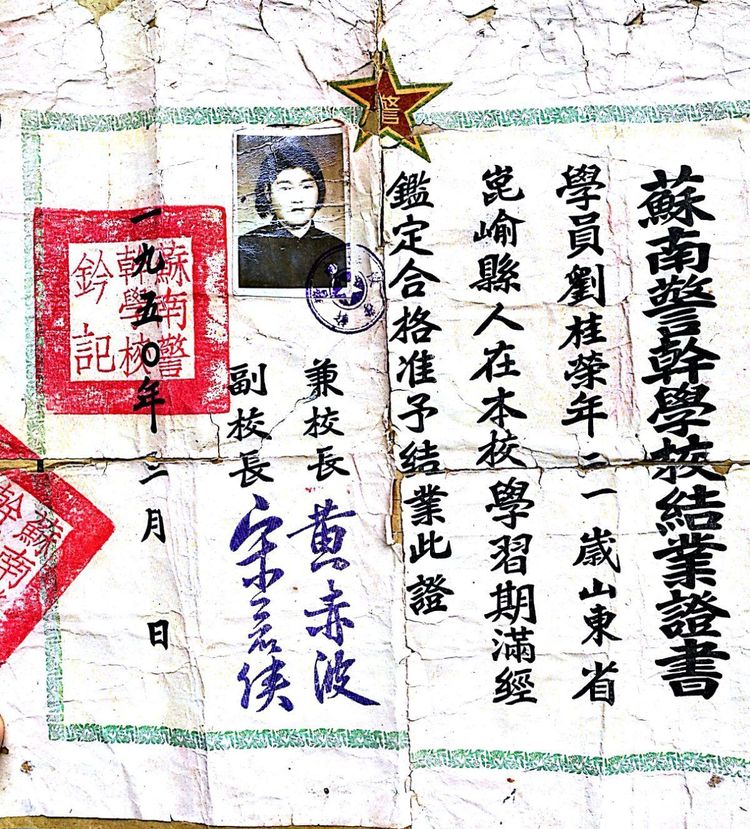 警
蘇南警幹學校結業證書
學員劉桂榮年二一歲山東省
崑崳縣人在本校學習期滿經
鑑定合格准予結業此證
兼校長 黄赤波
副校長 宋君俠
一九五〇年三月 日
蘇南警
幹學校
鈐記
蘇南
幹